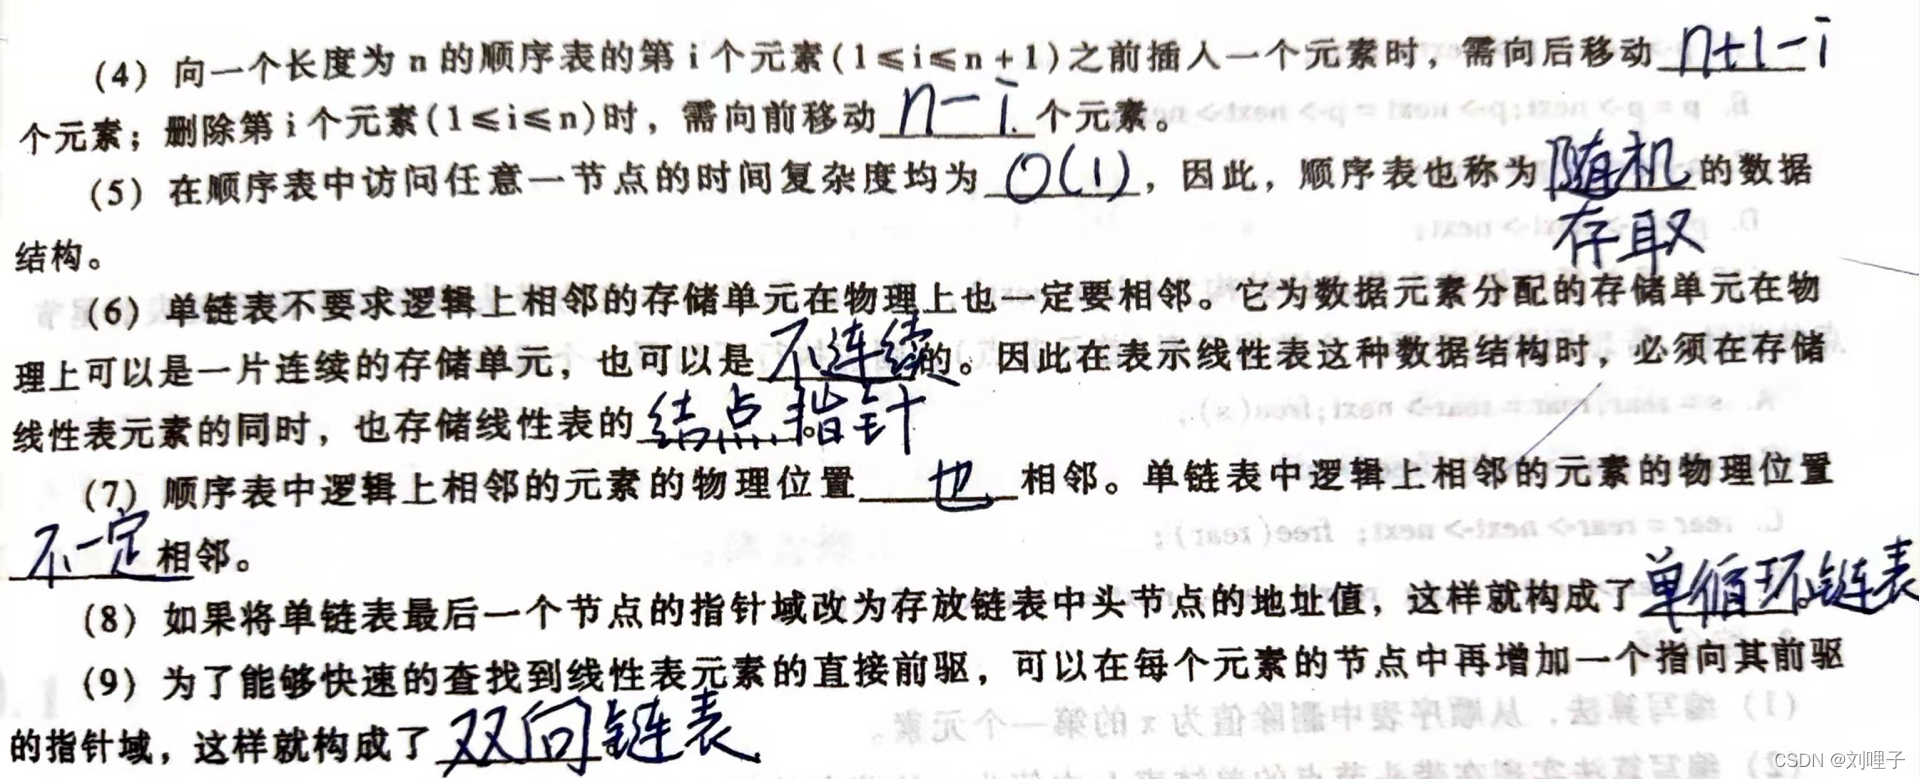 (4) 向一个长度为 n 的顺序表的第 i 个元素(1≤i≤n+1)之前插入一个元素时，需向后移动 n+1-i
个元素；删除第 i 个元素(1≤i≤n)时，需向前移动 n-i 个元素。
(5) 在顺序表中访问任意一节点的时间复杂度均为 O(1)，因此，顺序表也称为 随机存取 的数据
结构。
(6) 单链表不要求逻辑上相邻的存储单元在物理上也一定要相邻。它为数据元素分配的存储单元在物
理上可以是一片连续的存储单元，也可以是 不连续 的。因此在表示线性表这种数据结构时，必须在存储
线性表元素的同时，也存储线性表的 结点指针。
(7) 顺序表中逻辑上相邻的元素的物理位置 也 相邻。单链表中逻辑上相邻的元素的物理位置
不一定 相邻。
(8) 如果将单链表最后一个节点的指针域改为存放链表中头节点的地址值，这样就构成了 单循环链表。
(9) 为了能够快速的查找到线性表元素的直接前驱，可以在每个元素的节点中再增加一个指向其前驱
的指针域，这样就构成了 双向链表.
CSDN @刘哩子